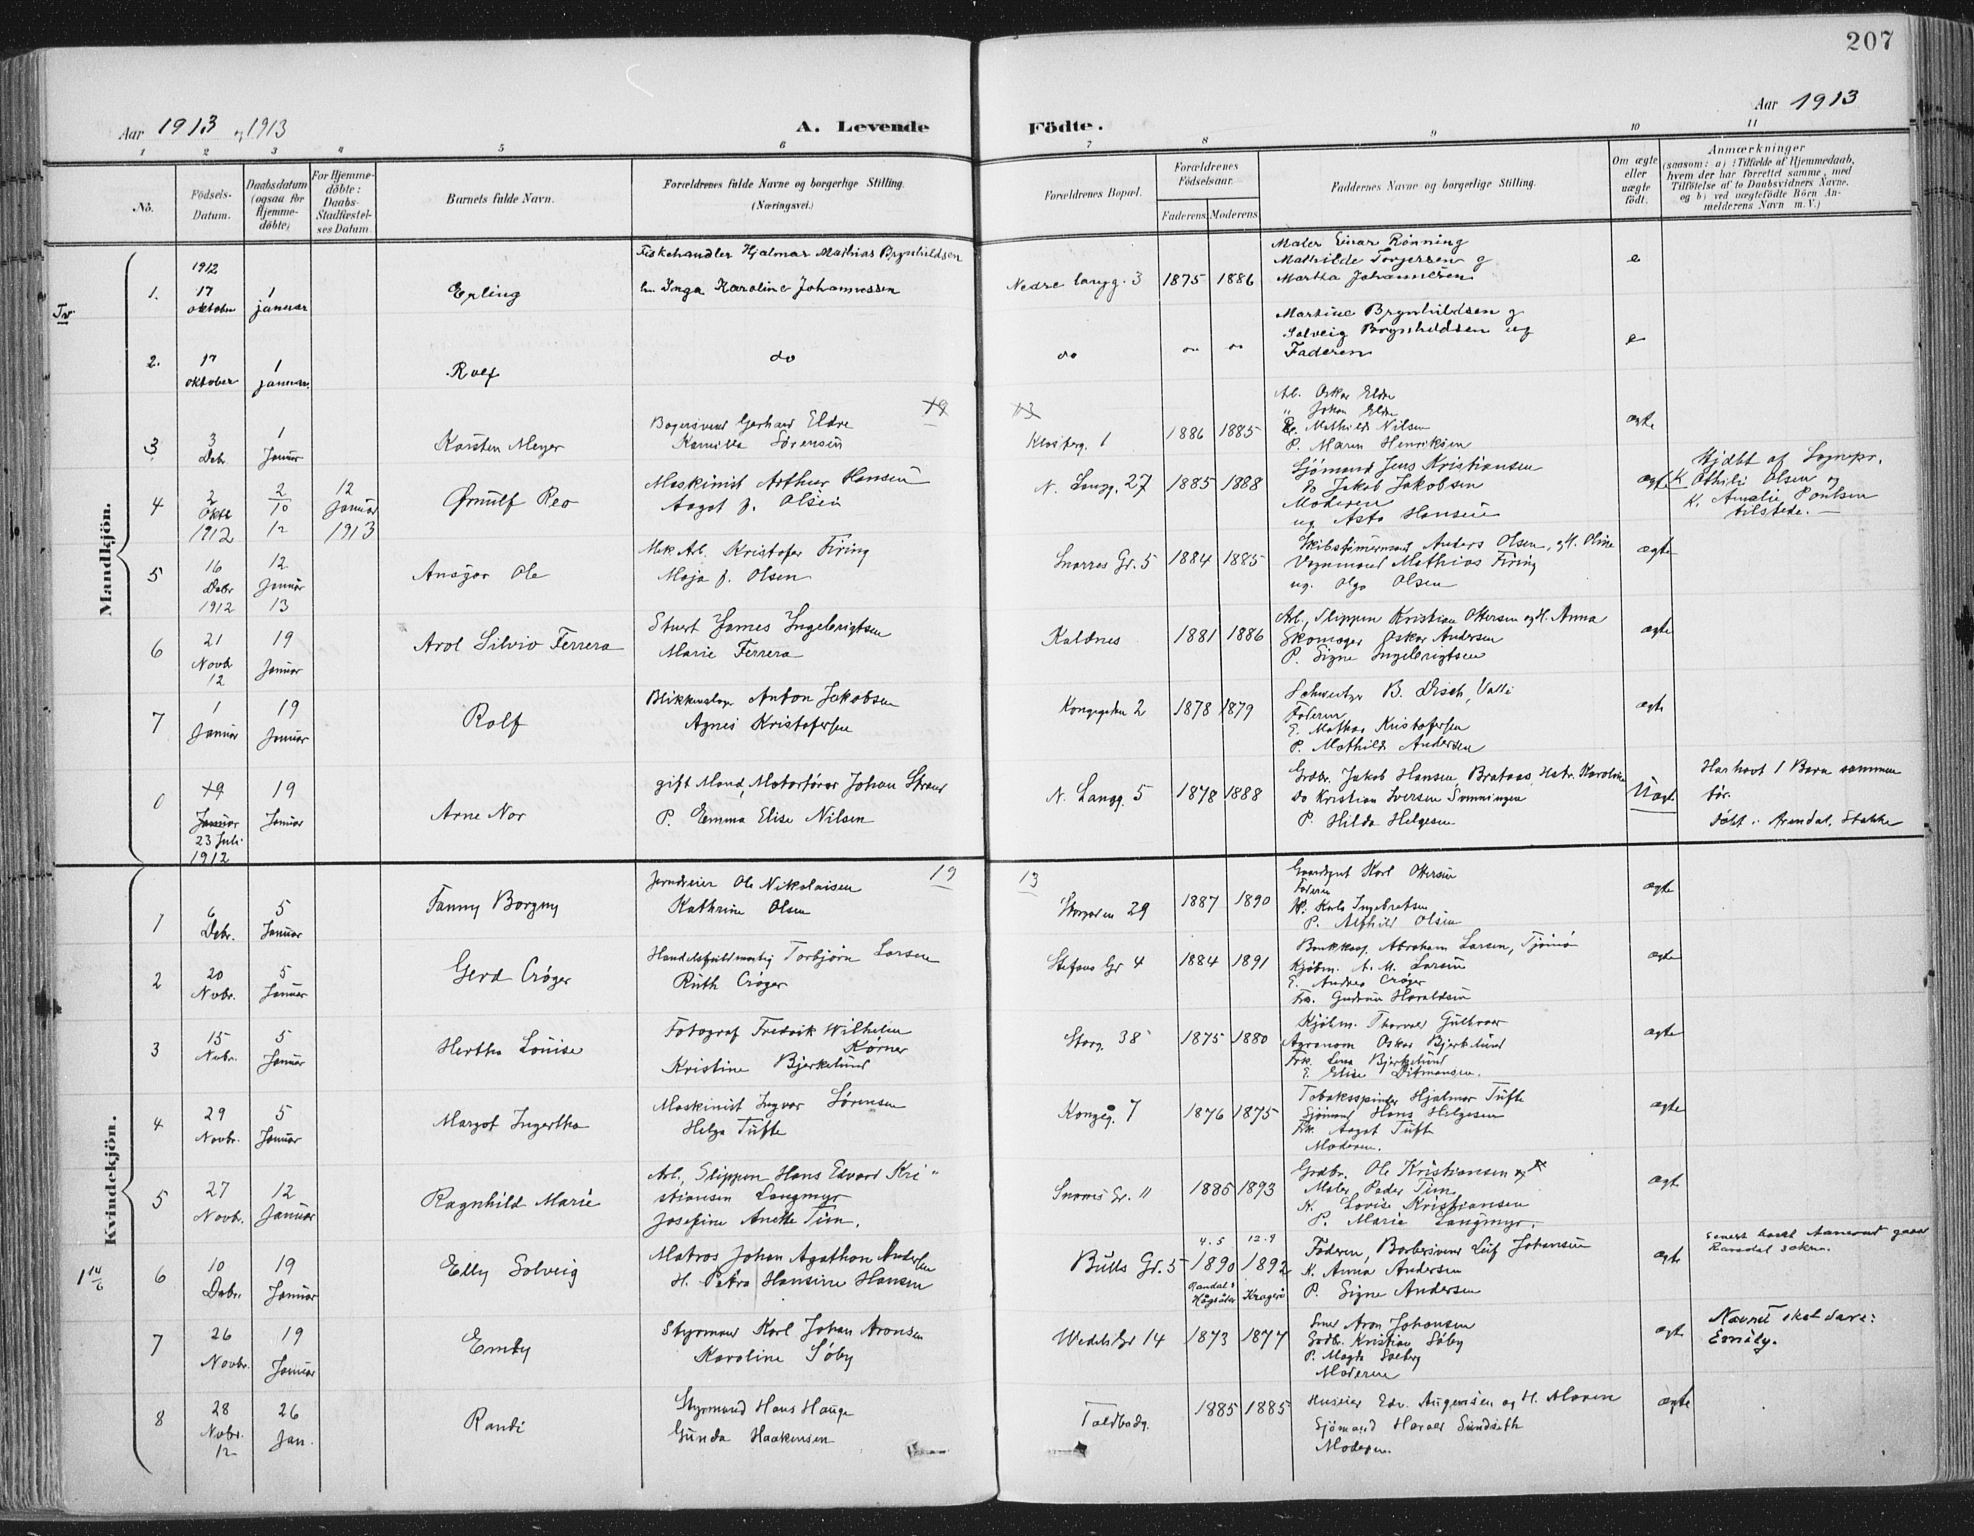 207
Aar 1913 og 1913
A. Levende Födte.
Aar 1913
1 2 3 4 5 6 7 8 9 10 11
Nö.
Födsels-Datum.
Daabsdatum (ogsaa for Hjemme-döbte)
For Hjemme-döbte: Daabs-Stadfæstel-ses Datum.
Barnets fulde Navn.
Forældrenes fulde Navne og borgerlige Stilling.
(Næringsvei.)
Forældrenes Bopæl.
Forældrenes Födselsaar.
Faderens Moderens
Faddernes Navne og borgerlige Stilling.
Om ægte eller uægte födt.
Anmærkninger
(saasom: a) i Tilfælde af Hjemmedaab,
hvem der har forrettet samme, med
Tilföielse af to Daabsvidners Navne,
og b) ved uægtefödte Börn An-
melderens Navn m. V.)
Mandkjön.
Tv.
1. 1912 17 oktober 1 januar Erling
Fiskehandler Hjalmar Mathias Brynhildsen
h. Inga Karoline Johannessen
Nedre Langg. 3 1875 1886
Maler Einar Rønning
Mathilde Torjersen g
Martha Johannesen
e
2. 17 oktober 1 januar Rolf
do do
Martine Brynhildsen g
Solveig Brynhildsen ug
Faderen
e
19 13
3 3 Deb. 1 Januar Karsten Meyer
Bagersvend Gerhard Eldre
Kamilla Sörensen
Klosterg. 1 1886 1885
Arb. Oskar Eldre
" Johan Eldre
E. Mathilde Nilsen
P. Maren Henriksen
ægte
4 2 Oktb 1912 2/10 12 12 Januar 1913 Ørnulf Reo
Maskinist Arthur Hansen
Aagot f. Olsen
N. Langg. 27 1885 1888
Sjömand Jens Kristiansen
Do Jakob Jakobsen
Moderen
ug Asta Hansen
ægte
Hjdbt af Sognepr.
K. Othilie Olsen og
K. Amalie Poulsen
tilstede.
5 16 Debr 1912 12 Januar 13 Ansgar Ole
Mek Arb. Kristofer Firing
Maja f. Olsen
Snorres Gr. 5 1884 1885
Skibstömermand Anders Olsen, og H. Oline
Vognmand Mathias Firing
ug. Olga Olsen
ægte
6 21 Novb 12 19 Januar Arol Silvio Ferrera
Stuert James Ingebrigtsen
Marie Ferrera
Kaldnes 1881 1886
Arb. Slippen Kristian Ottersen og H. Anna
Skomager Oskar Andersen
P. Signe Ingebrigtsen
ægte
7 1 Januar 19 Januar Rolf
Blikkenslager Anton Jakobsen
Agnes Kristofersen
Kongegaten 2 1878 1879
Schweitzer B. Disch, Valle
Faderen
E. Mathea Kristofersen
P. Mathilde Andersen
ægte
0 19 Januar 23 Juli 1912 19 Januar Arne Nor
gift Mand, Motorförer Johan Strand
P. Emma Elise Nilsen
N. Langg. 5 1878 1888
Grdbr. Jakob Hansen, Brataas, Hstr. Karoline
Do Kristian Iversen Sonningen
P. Hilda Helgesen
Uægte
Har havt 1 Barn sammen
för.
Födt i Arendal, Stokke
Kvindekjön.
19 13
1 6 Debr. 5 Januar Fanny Borgny
Jerndreier Ole Nikolaisen
Kathrine Olsen
Storgaten 29 1887 1890
Gaardsgut Karl Ottersen
Faderen
K. Karla Ingebretsen
P. Alfhild Olsen
ægte
2 20 Novbr. 5 Januar Gerd Crøger
Handelsfuldmægtig Torbjörn Larsen
Ruth Crøger
Stefans Gr 4 1884 1891
Bankkass. Abraham Larsen, Tjömö
Kjöbm. A. M. Larsen
E. Andrea Crøger
Frk. Gudrun Haraldsen
ægte
3 15 Novbr. 5 Januar Hertha Louise
Fotograf Fredrik Wilhelm
Körner
Kristine Bjerkelund
Storg. 38 1875 1880
Kjöbm. Thorvald Gulbraar
Agronom Oskar Bjerkelund
Frk. Lena Bjerkelund
E. Elise Ditmansen.
ægte
4 29 Novbr. 5 Januar Margot Ingertha
Maskinist Ingvar Sörensen
Helga Tufte
Kongeg. 7 1876 1875
Tobaksspinder Hjalmar Tufte
Sjömand Hans Helgesen
Frk. Aagot Tufte
Moderen.
ægte
5 27 Novbr. 12 Januar Ragnhild Marie
Arb., Slippen Hans Edvard Kri-
stiansen Langmyr
Josefine Anette Tim.
Snorres Gr. 11 1885 1893
Grdbr. Ole Kristiansen og
Maler Peder Tim
K. Lovise Kristiansen
P. Marie Langmyr.
ægte
1 14/6
6 10 Debr. 19 Januar Elly Solveig
Matros Johan Agathon Andersen
H. Petra Hansine Hansen
Bulls Gr. 5 4.5 1890 12.9 1892 Kragerö
Faderen, Barbersvend Leif Johansen
K. Anna Andersen
P. Signe Andersen
ægte
7 26 Novbr. 19 Januar Emly
Styrmand Karl Johan Aronsen
Karoline Söby
Wedels Gr 14 1873 1877
Smed Aron Johansen
Grdbr. Kristian Söby
P. Magda Solberg
Moderen
ægte
Navnet skal være:
Emily.
8 28 Novbr. 12 26 Jan. Randi
Styrmand Hans Hauge
Gunda Haakensen
Toldbodg. 1885 1885
Huseier Edv. Augensen og H. Maren
Sjömand Harald Sundseth
Moderen.
ægte